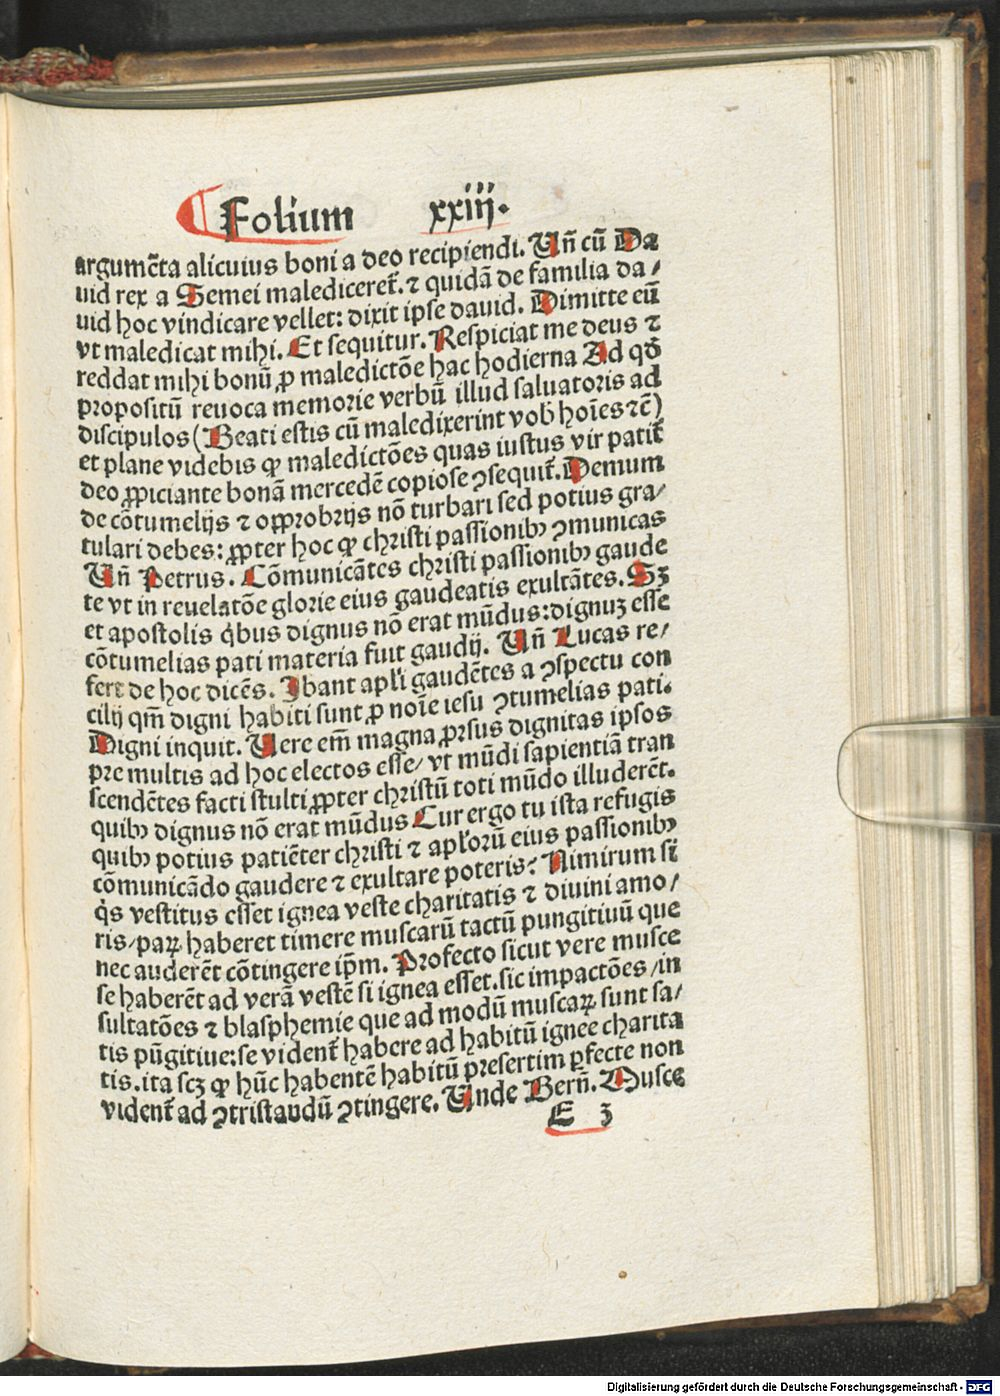 Folium xxiij.
argumēta alicuius boni a deo recipiendi. Vñ cū Da
uid rex a Semei malediceret̄. ⁊ quidā de familia da/
uid hoc vindicare vellet: dixit ipse dauid. Dimitte eū
vt maledicat mihi. Et sequitur. Respiciat me deus ⁊
reddat mihi bonū ꝓ maledictōe hac hodierna Ad qđ
propositū reuoca memorie verbū illud saluatoris ad
discipulos (Beati estis cū maledixerint vob̄ hoīes ⁊c̄)
et plane videbis ꝙ maledictōes quas iustus vir patit̄
deo ꝓpiciante bonā mercedē copiose ꝯsequit̄. Demum
de cōtumelijs ⁊ oꝓprobrijs nō turbari sed potius gra/
tulari debes: ꝓpter hoc ꝙ christi passionibꝰ ꝯmunicas
Vñ Petrus. Cōmunicātes christi passionibꝰ gaude
te vt in reuelatōe glorie eius gaudeatis exultātes. Sꝫ
et apostolis q̇bus dignus nō erat mūdus: dignuꝫ esse
cōtumelias pati materia fuit gaudij. Vñ Lucas re/
fert de hoc dicēs. Ibant apl̄i gaudētes a ꝯspectu con
cilij qm̄ digni habiti sunt ꝓ noīe iesu ꝯtumelias pati.
Digni inquit. Vere em̄ magna ꝓrsus dignitas ipsos
pre multis ad hoc electos esse/ vt mūdi sapientiā tran
scendētes facti stulti ꝓpter christū toti mūdo illuderēt.
quibꝰ dignus nō erat mūdus Cur ergo tu ista refugis
quibꝰ potius patiēter christi ⁊ apl̄orū eius passionibꝰ
cōmunicādo gaudere ⁊ exultare poteris? Nimirum si
q̇s vestitus esset ignea veste charitatis ⁊ diuini amo/
ris/ paꝝ haberet timere muscarū tactū pungitiuū que
nec auderēt cōtingere ip̄m. Profecto sicut vere musce
se haberēt ad verā vestē si ignea esset. sic impactōes/ in
sultatōes ⁊ blasphemie que ad modū muscaꝝ sunt sa/
tis pūgitiue: se vident̄ habere ad habitū ignee charita
tis. ita scꝫ ꝙ hūc habentē habitū presertim ꝑfecte non
vident̄ ad ꝯtristandū ꝯtingere. Vnde Bern̄. Musce
E 3
Digitalisierung gefördert durch die Deutsche Forschungsgemeinschaft - DFG